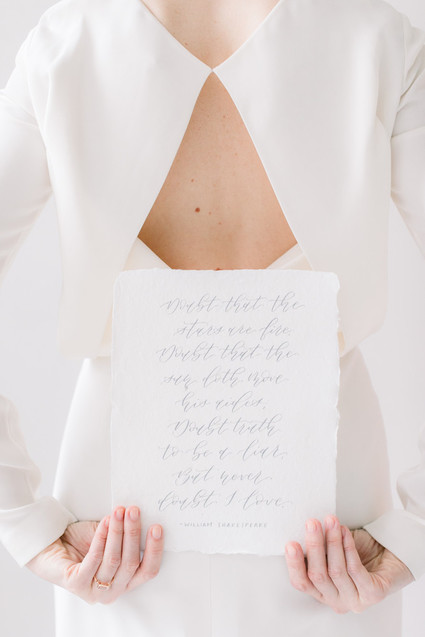 Doubt that the
stars are fire,
Doubt that the
sun doth move
his aides,
Doubt truth
to be a liar,
But never
doubt I love.
-WILLIAM SHAKESPEARE